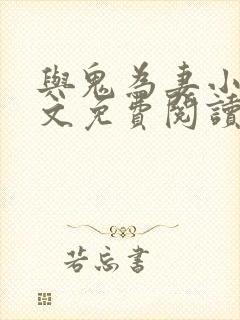 與鬼為妻小
文免費閱讀
若忘書